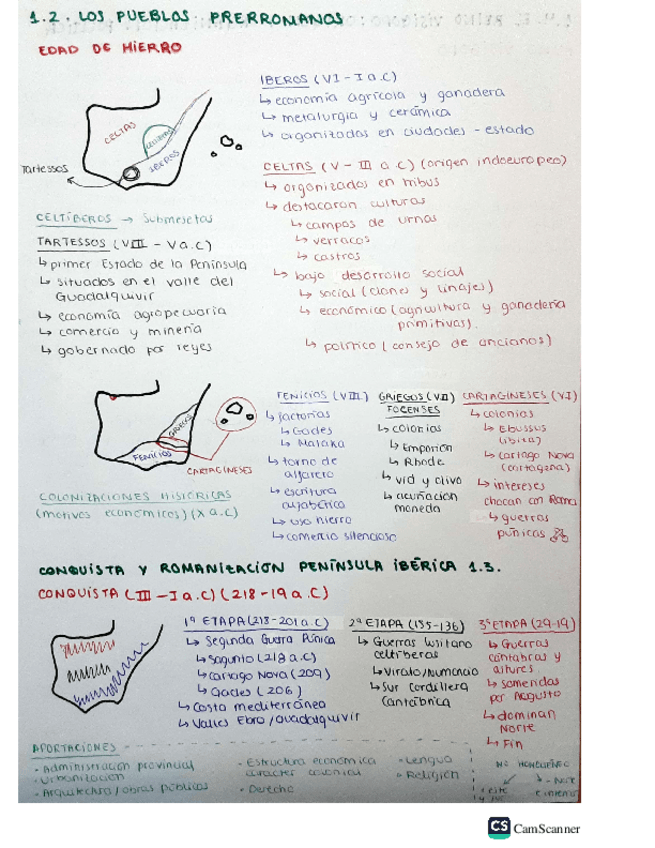 1.2. LOS PUEBLOS PRERROMANOS
EDAD DE HIERRO
CELTAS
IBEROS
Tartessos
CELTÍBEROS → Submesetas
TARTESSOS (VIII - V a.C)
↳ primer Estado de la Península
↳ situados en el valle del
Guadalquivir
↳ economía agropecuaria
↳ comercio y minería
↳ gobernado por reyes
IBEROS (VI - I a.C)
↳ economía agrícola y ganadera
↳ metalurgia y cerámica
↳ organizados en ciudades - estado
CELTAS (V - III a.C) (origen indoeuropeo)
↳ organizados en tribus
↳ destacaron culturas
↳ campos de urnas
↳ verracos
↳ castros
↳ bajo desarrollo social
↳ social (clanes y linajes)
↳ económico (agricultura y ganadería
primitivas).
↳ político (consejo de ancianos)
GRIEGOS
FENICIOS
CARTAGINESES
COLONIZACIONES HISTÓRICAS
(motivos económicos) (X a.C)
FENICIOS (VIII)
↳ factorías
↳ Gades
↳ Malaka
↳ torno de
alfarero
↳ escritura
alfabética
↳ uso hierro
↳ comercio silencioso
GRIEGOS (VII)
FOCENSES
↳ colonias
↳ Emporion
↳ Rhode
↳ vid y olivo
↳ acuñación
moneda
CARTAGINESES (VI)
↳ colonias
↳ Ebussus
(ibiza)
↳ Cartago Nova
(cartagena)
↳ intereses
chocan con Roma
↳ guerras
púnicas
CONQUISTA Y ROMANIZACIÓN PENÍNSULA IBÉRICA 1.3.
CONQUISTA (III - I a.C) (218 - 19 a.C)
1ª ETAPA (218-201 a.C)
↳ Segunda Guerra Púnica
↳ Sagunto (218 a.C)
↳ Cartago Nova (209)
↳ Gades (206)
↳ Costa mediterránea
↳ Valles Ebro/Guadalquivir
2ª ETAPA (155-136)
↳ Guerras lusitano
celtíberas
↳ Viriato/Numancia
↳ Sur Cordillera
Cantábrica
3ª ETAPA (29-19)
↳ Guerras
cántabras y
astures
↳ sometidas
por Augusto
↳ dominan
Norte
↳ Fin
APORTACIONES
- Administración provincial
- Urbanización
- Arquitectura / obras públicas
- Estructura económica
carácter colonial
- Derecho
- Lengua
- Religión
NO HOMOGÉNEO
CS CamScanner